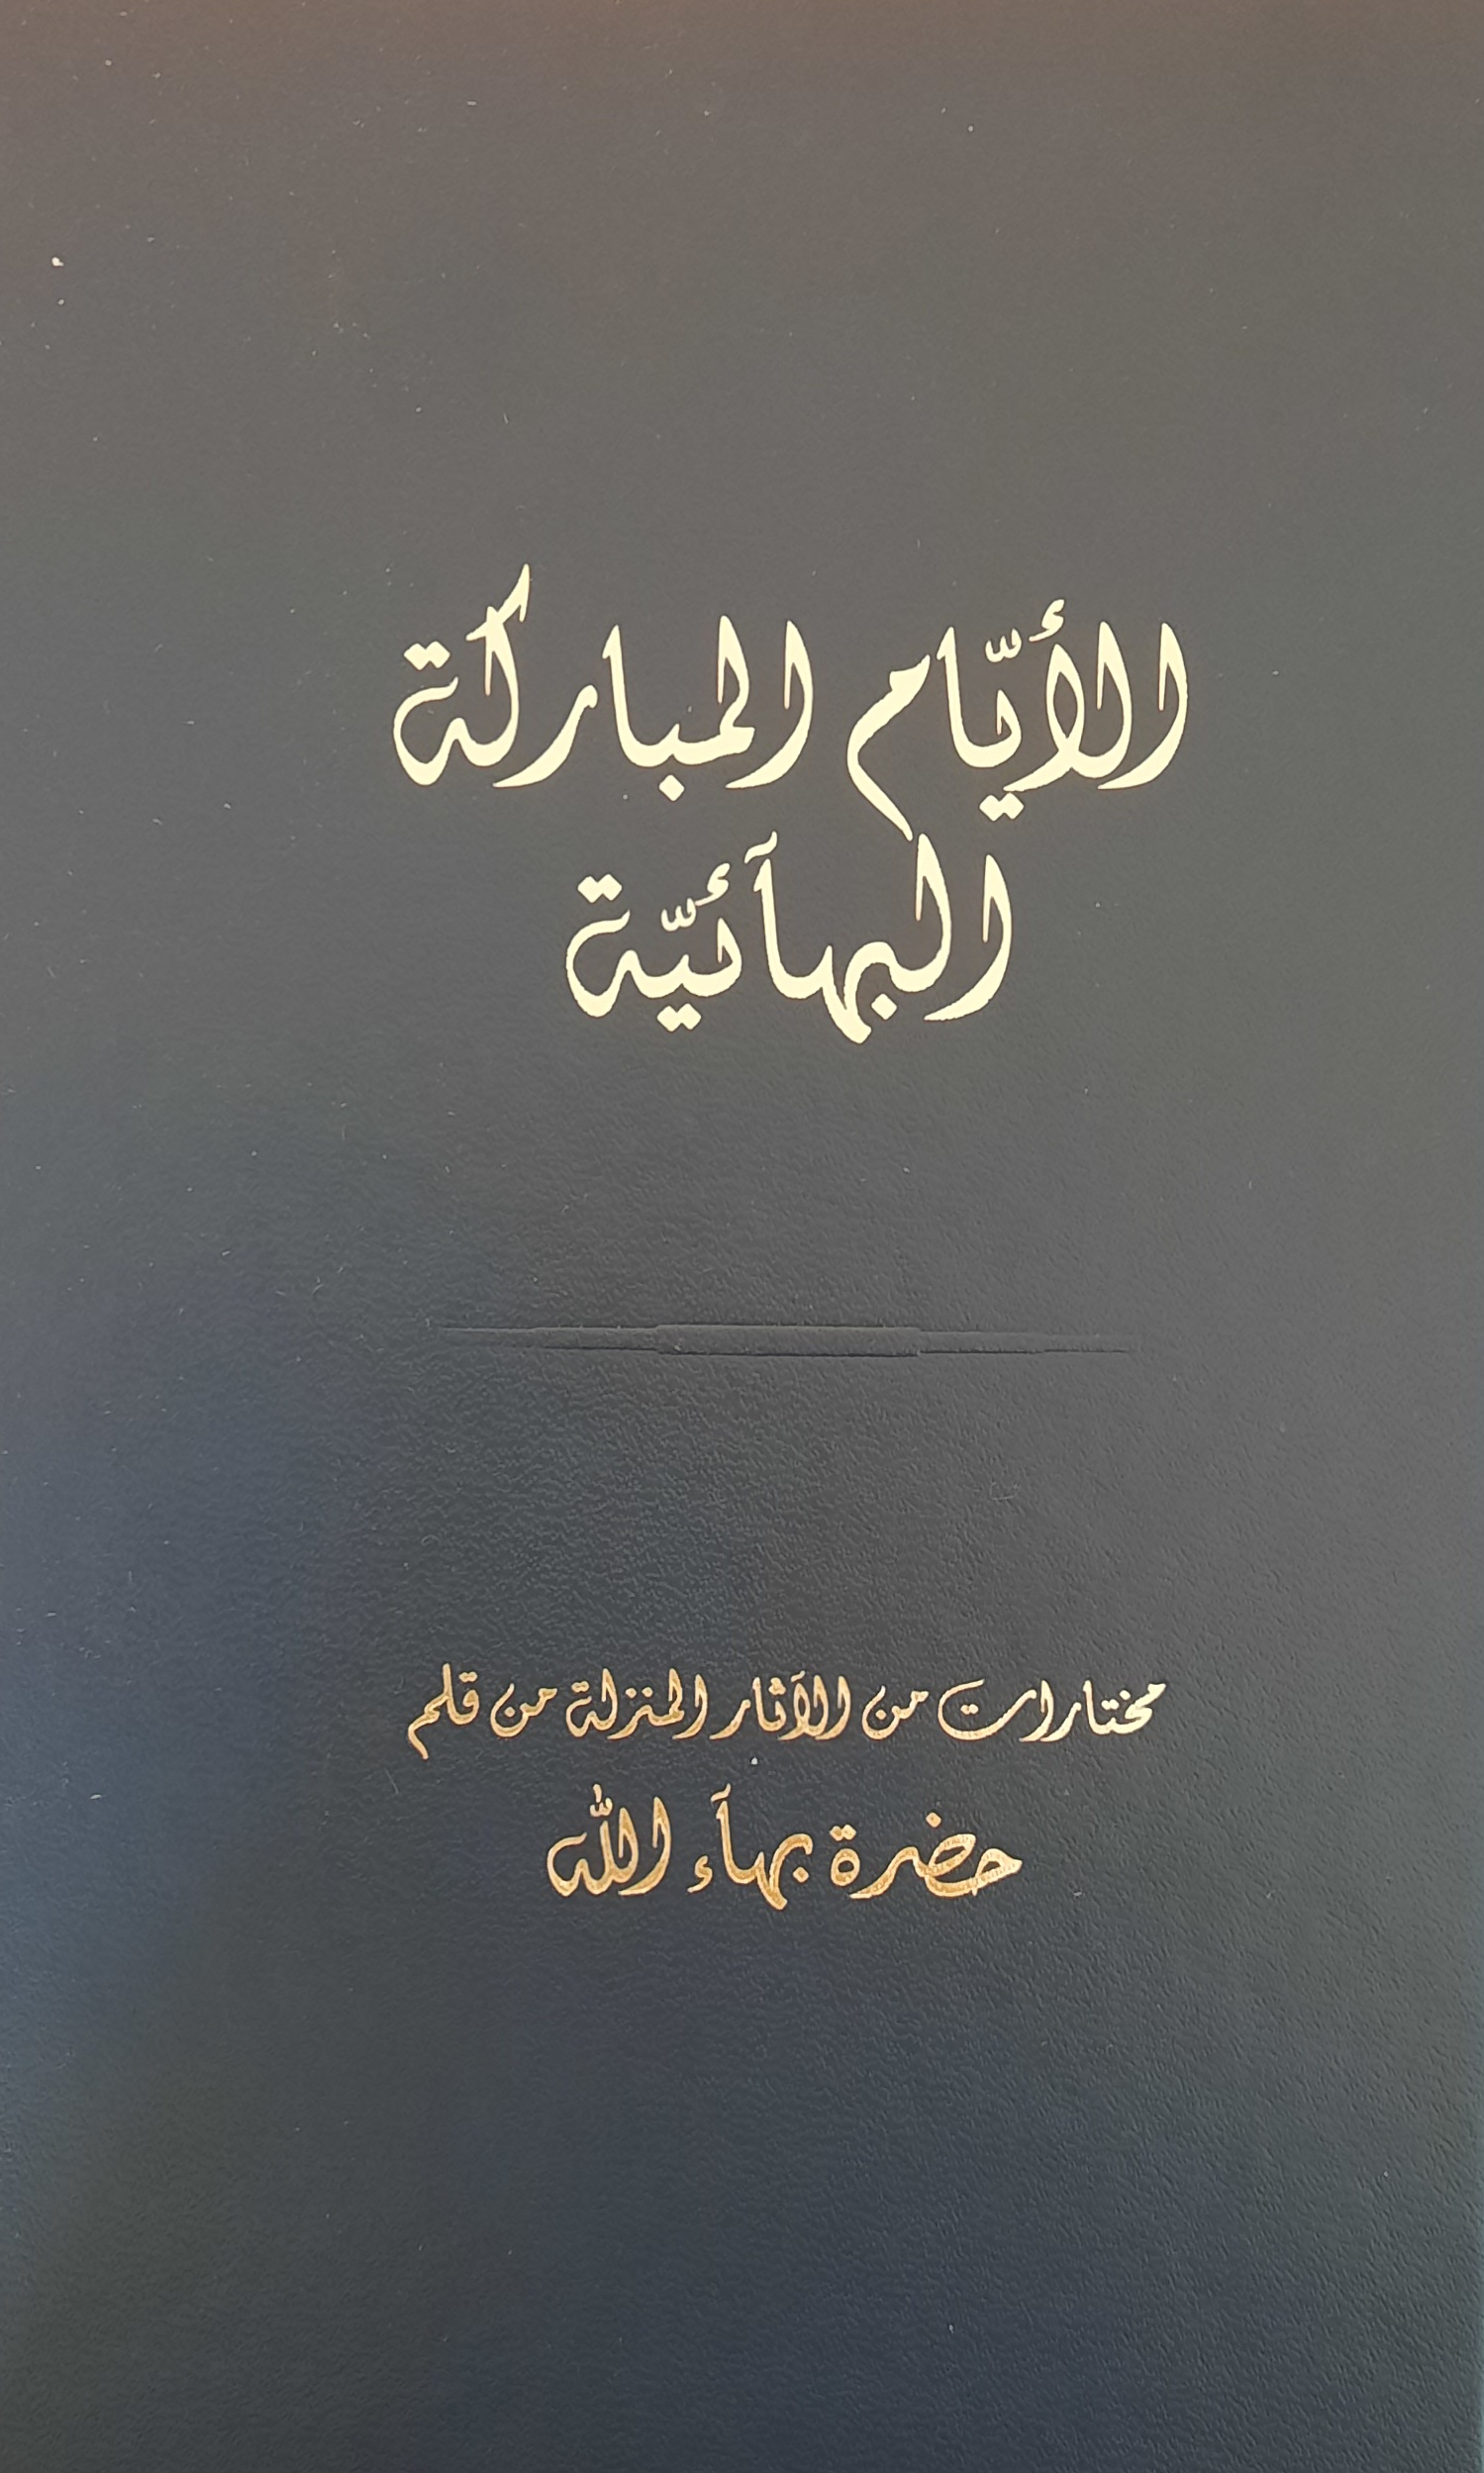 الأيّام المباركة
البهآئيّة
مختارات من الآثار المنزلة من قلم
حضرة بهآء الله